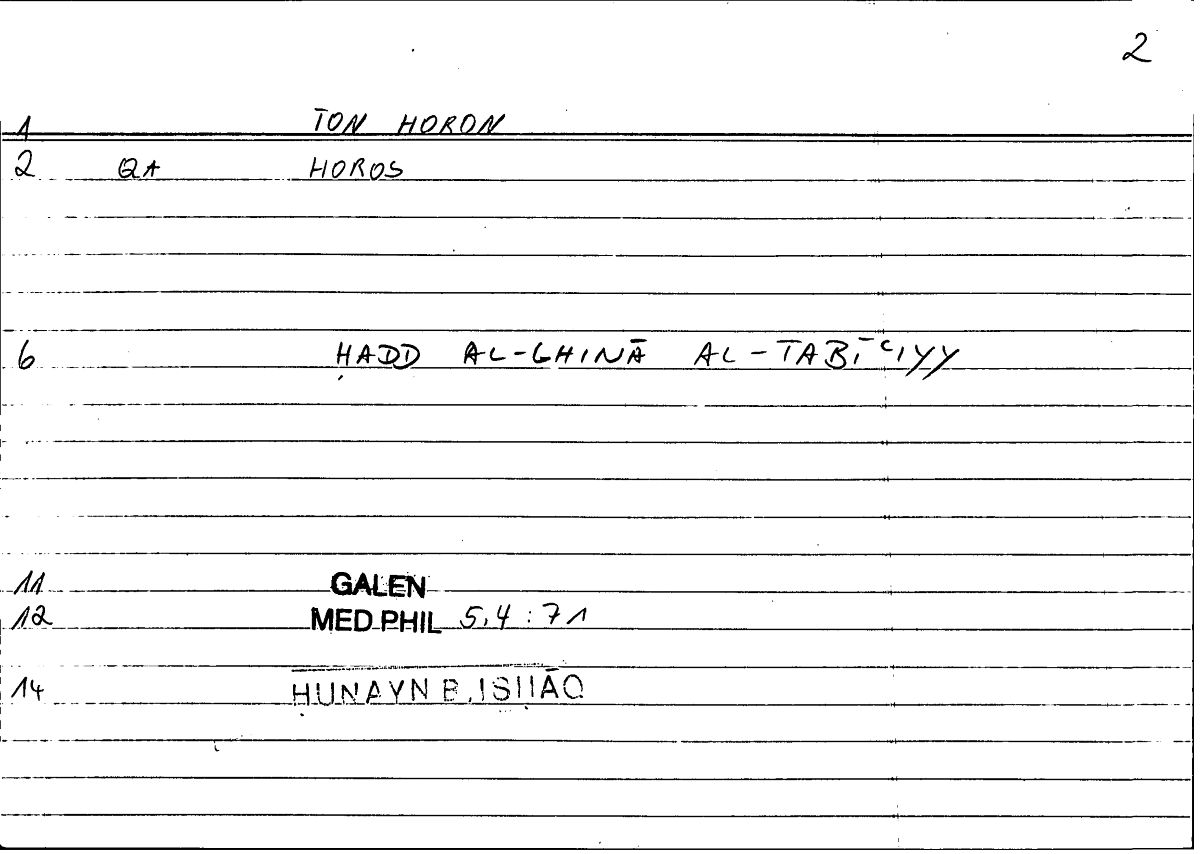 2
1 TON HORON
2 QA HOROS
6 ḤADD AL-GHINĀ AL-TABĪʿIYY
11 GALEN
12 MED PHIL 5,4 : 71
14 ḤUNAYN B. ISḤĀQ